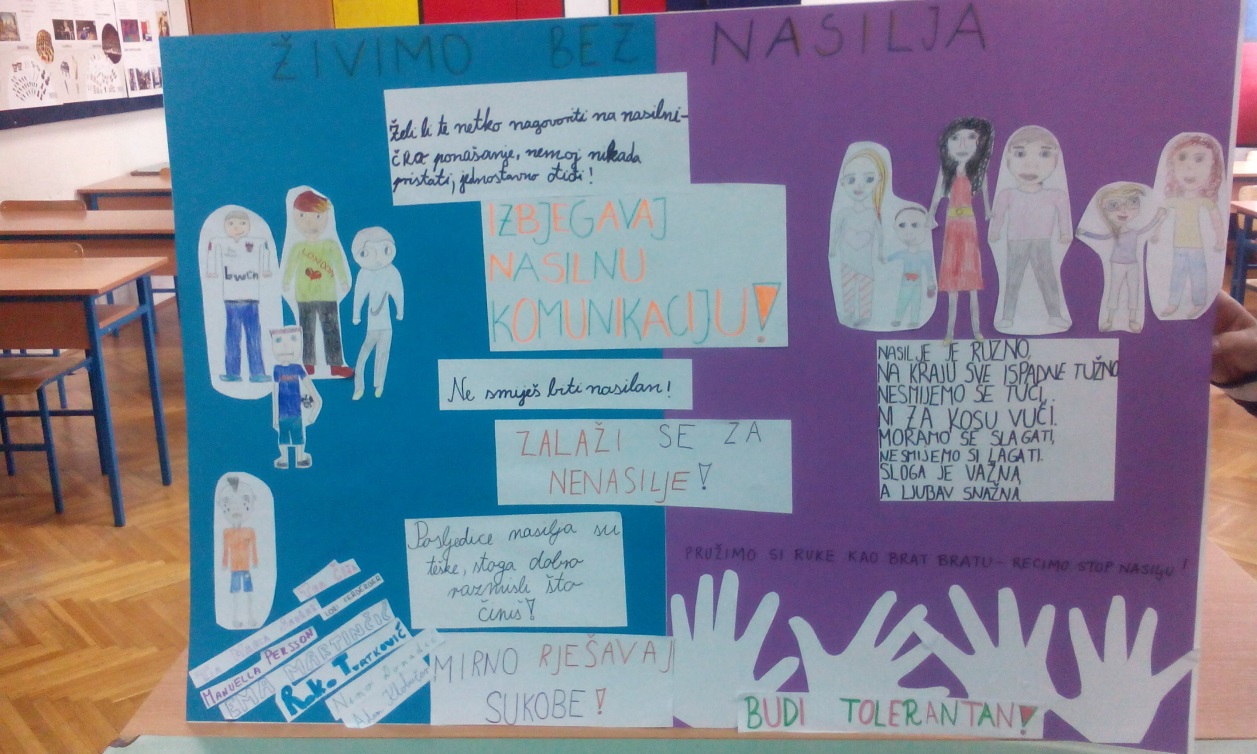 ŽIVIMO BEZ NASILJA
Želi li te netko nagovoriti na nasilni-
čko ponašanje, nemoj nikada
pristati, jednostavno otiđi!
IZBJEGAVAJ
NASILNU
KOMUNIKACIJU!
Ne smiješ biti nasilan!
ZALAŽI SE ZA
NENASILJE!
Posljedice nasilja su
teške, stoga dobro
razmisli što
činiš!
MIRNO RJEŠAVAJ
SUKOBE!
bwcn
LONDON
NASILJE JE RUŽNO,
NA KRAJU SVE ISPADNE TUŽNO
NESMIJEMO SE TUĆI,
NI ZA KOSU VUĆI.
MORAMO SE SLAGATI,
NESMIJEMO SI LAGATI.
SLOGA JE VAŽNA,
A LJUBAV SNAŽNA
PRUŽIMO SI RUKE KAO BRAT BRATU - RECIMO STOP NASILJU!
BUDI TOLERANTAN!
MANUELLA PERSSON
EMA MARTINČIĆ
Roko Tvrtković